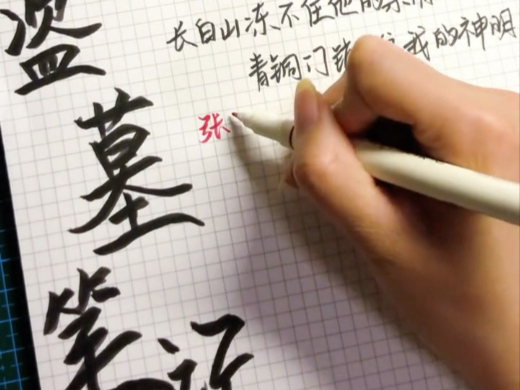 盗墓笔记
长白山冻不住他的
青铜门我的神明
张